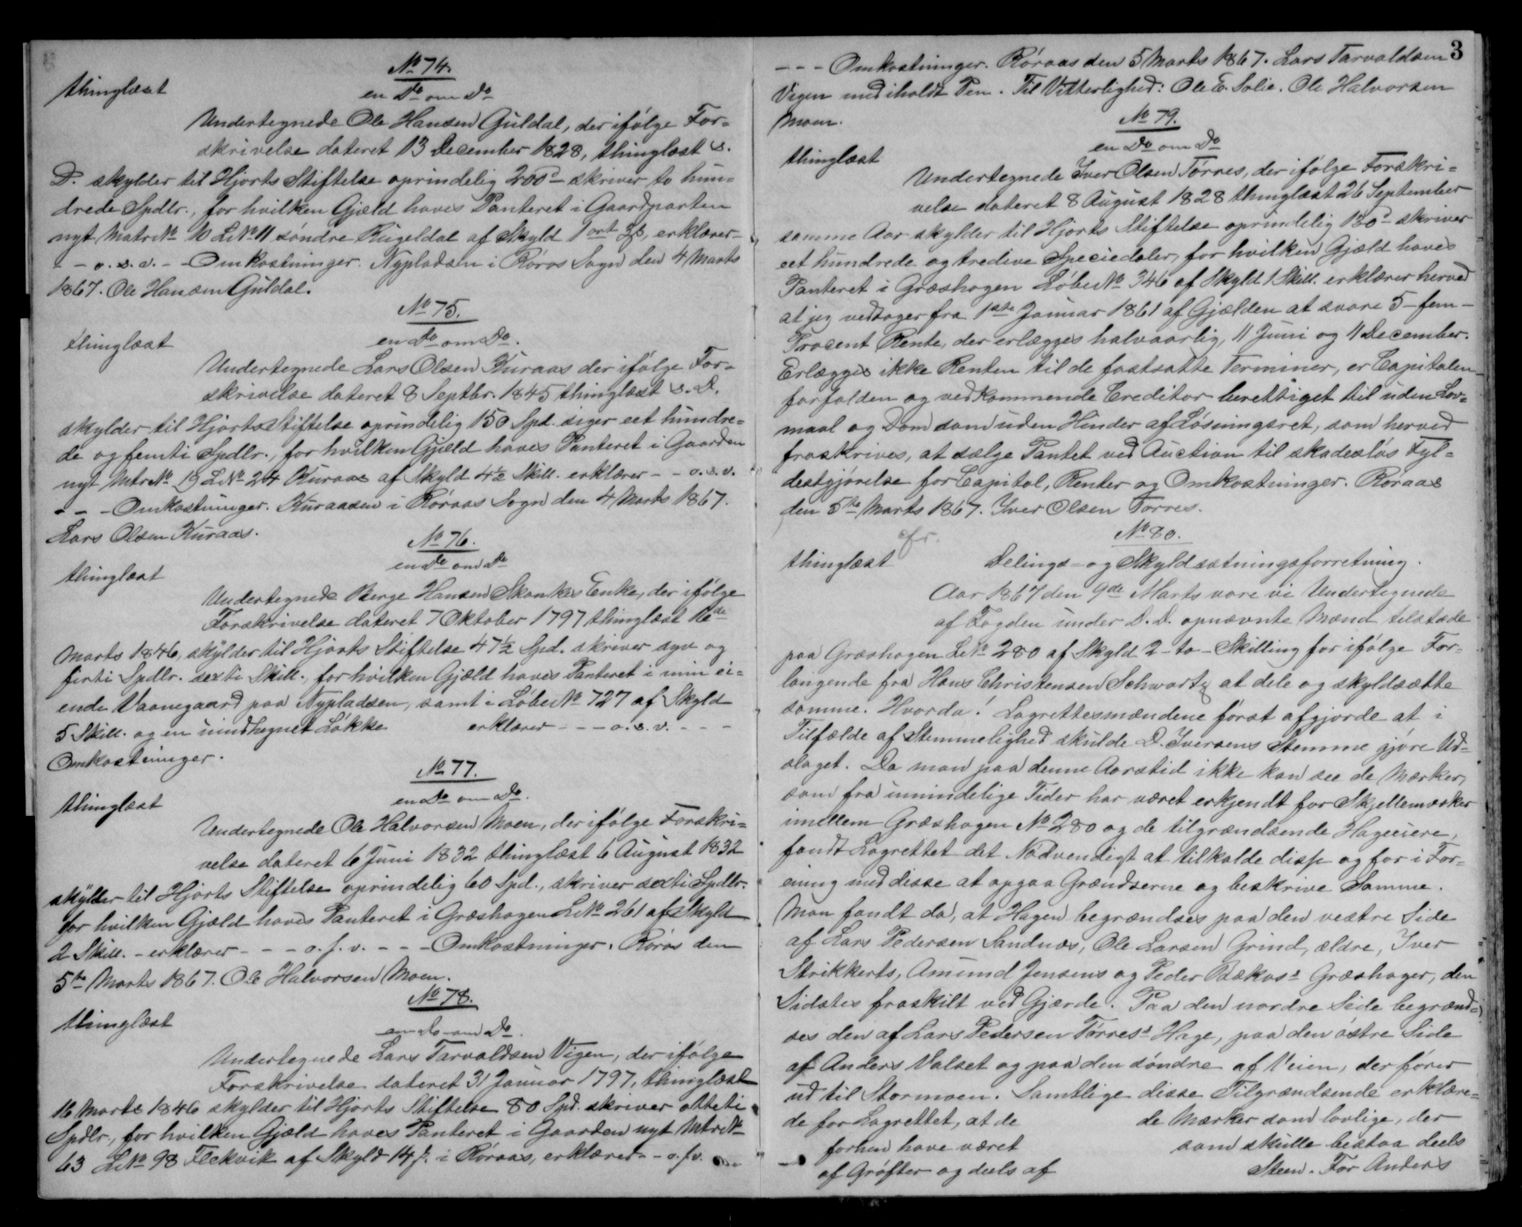 No 74.
thinglæst
en Do om Do
Undertegnede Ole Hansen Guldal, der ifølge For=
skrivelse dateret 13 December 1828, thinglæst s.
D. skylder til Hjorts Stiftelse oprindelig 200 - skriver to hun-
drede Spdlr., for hvilken Gjæld haves Panteret i Gaardparten
nyt Matr No 10 L No 11 søndre Rugeldal af Skyld 1 ort erklærer-
- - o. s. v. - - Omkostninger. Nypladsen i Røros Sogn den 4 Marts
1867. Ole Hansen Guldal.
No 75.
thinglæst
en Do om Do.
Undertegnede Lars Olsen Kuraas der ifølge For-
skrivelse dateret 8 Septbr. 1845 thinglæst s. D.
skylder til Hjorts Stiftelse oprindelig 150 Spd. siger eet hundre-
de og femti Spdlr., for hvilken Gjæld haves Panteret i Gaarden
nyt Mtr No 19 L No 24 Kuraas af Skyld 4½ Skill. erklærer - - o. s. v.
- - - Omkostninger. Kuraasen i Røraas Sogn den 4 Marts 1867.
Lars Olsen Kuraas.
No 76.
thinglæst
en Do om Do
Undertegnede Berge Hansen Skankes Enke, der ifølge
Forskrivelse dateret 7 Oktober 1797 thinglæst 16de
Marts 1846, skylder til Hjorts Stiftelse 47½ Spd. skriver syv og
firti Spdlr. sexti Skill., for hvilken Gjæld haves Panteret i min ei-
ende Vaanegaard paa Nypladsen, samt i Løbe No 727 af Skyld
5 Skill. og en uindhegnet Løkke erklærer - - - o. s. v. - - -
Omkostninger.
No 77.
thinglæst
en Do om Do.
Undertegnede Ole Halvorsen Moen, der ifølge Forskri=
velse dateret 6 Juni 1832 thinglæst 6 August 1832
skylder til Hjorts Stiftelse oprindelig 60 Spd., skriver sexti Spdlr.
for hvilken Gjæld haves Panteret i Græshagen L No 261 af Skyld
2 Skill. - erklærer - - - o. s. v. - - - Omkostninger. Røros den
5te Marts 1867. Ole Halvorsen Moen.
No 78.
thinglæst
en Do om Do.
Undertegnede Lars Tarvaldsen Vigen, der ifølge
Forskrivelse dateret 31 Januar 1797, thinglæst
16 Marts 1846 skylder til Hjorts Stiftelse 80 Spd. skriver otteti
Spdlr., for hvilken Gjæld haves Panteret i Gaarden nyt Mtr No
63 L No 98 Flekvik af Skyld 14 i Røraas, erklærer - - o. s. v. - -
3
- - - Omkostninger. Røraas den 5 Marts 1867. Lars Tarvaldsen
Vigen med iholdt Pen. Til Vitterlighed: Ole E. Solie. Ole Halvorsen
Moen.
No 79.
thinglæst
en Do om Do
Undertegnede Iver Olsen Torres, der ifølge Forskri=
velse dateret 8 August 1828 thinglæst 26 September
samme Aar skylder til Hjorts Stiftelse oprindelig 130 skriver
eet hundrede og tredive Speciedaler, for hvilken Gjæld haves
Panteret i Græshagen Løbe No 346 af Skyld 1 Skill. erklærer herved
at jeg vedtager fra 1ste Januar 1861 af Gjælden at svare 5 - fem -
Procent Rente, der erlægges halvaarlig, 11 Juni og 11 December.
Erlægges ikke Renten til de fastsatte Terminer, er Capitalen
forfalden og vedkommende Creditor berettiget til uden Lov=
maal og Dom samt uden Hinder af Løsningsret, som herved
fraskrives, at sælge Pantet ved Auction til skadesløs Fyl=
destgjørelse for Capital, Renter og Omkostninger. Røraas
den 5te Marts 1867. Iver Olsen Torres.
cfr.
No 80.
thinglæst
Delings- og Skyldsætningsforretning.
Aar 1867 den 9de Marts vare vi Undertegnede
af Fogden under D. D. opnævnte Mænd tilstæde
paa Græshagen L No 280 af Skyld 2 - to - Skilling for ifølge For-
langende fra Hans Christensen Schwartz at dele og skyldsætte
samme. Hvorda! Lagrettesmændene først afgjorde at i
Tilfælde af Stemmelighed skulde D. Iversens Stemme gjøre Ud-
slaget. Da man paa denne Aarstid ikke kan see de Mærker,
som fra umindelige Tider har været erkjendt for Skjellemærker
mellem Græshagen No 280 og de tilgrændsende Hageeiere,
fandt Lagrettet det Nødvendigt at tilkalde disse og for i For-
ening med disse at opgaa Grændserne og beskrive Samme.
Man fandt da, at Hagen begrændses paa den vestre Side
af Lars Pedersen Sandnes, Ole Larsen Grind, ældre, Iver
Strikkerts, Amund Jensens og Peder Bækoss Græshager, den
Sidstes fraskilt ved Gjærde. Paa den nordre Side begrænd-
ses den af Lars Pedersen Tørress Hage, paa den østre Side
af Anders Valset og paa den søndre af Veien, der fører
ud til Stormoen. Samtlige disse Tilgrændsende erklære-
de for Lagrettet, at de de Mærker som lovlige, der
forhen have været som skulle bestaa deels
af Grøfter og deels af Steen. For Anders